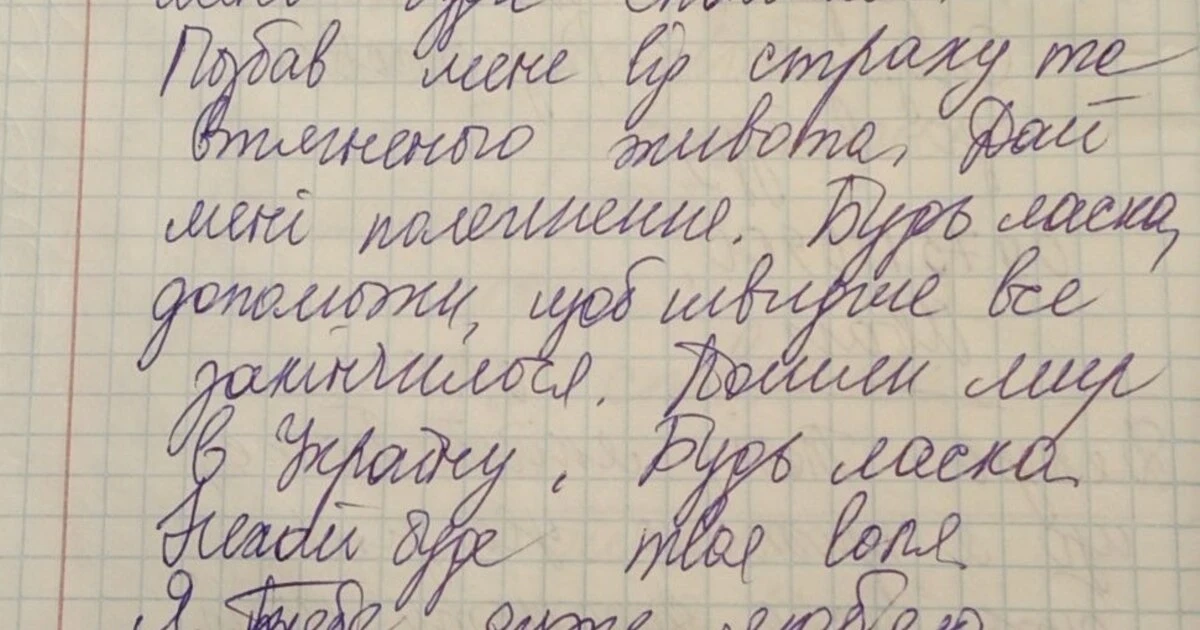 Позбав мене від страху та
втягненого живота. Дай
мені полегшення. Будь ласка,
допоможи, щоб швидше все
закінчилося. Пошли мир
в Україну, Будь ласка
Нехай буде твоя воля
Я Тебе дуже люблю